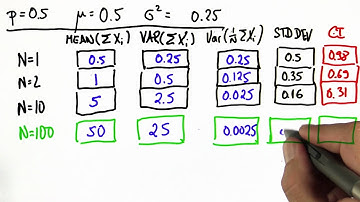 p=0.5 μ=0.5 σ²=0.25
MEAN(ΣXᵢ) VAR(ΣXᵢ) Var(1/N ΣXᵢ) STD DEV CI
N=1 0.5 0.25 0.25 0.5 0.98
N=2 1 0.5 0.125 0.35 0.69
N=10 5 2.5 0.025 0.16 0.31
N=100 50 25 0.0025